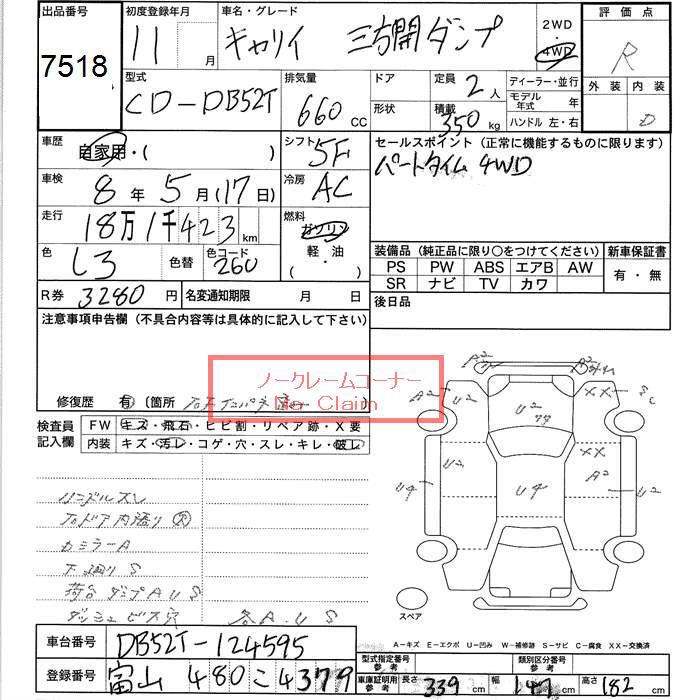 出品番号 初度登録年月 車名・グレード 評価点
7518 11 月 キャリイ 三方開ダンプ 2WD ・ 4WD R
型式 排気量 ドア 定員 2 人 ディーラー・並行 外装 内装
CD-DB52T 660 CC 形状 積載 350 kg モデル年式 年 D
ハンドル 左・右
車歴 自家用・( ) シフト 5F セールスポイント (正常に機能するものに限ります)
車検 8 年 5 月 (17 日) 冷房 AC パートタイム 4WD
走行 18万1千423 km 燃料 ガソリン
色 しろ 色替 色コード 260 軽・油 ( ・ )
装備品 (純正品に限り○をつけてください) 新車保証書
PS PW ABS エアB AW 有・無
SR ナビ TV カワ
R券 3280 円 名変通知期限 月 日 後日品
注意事項申告欄 (不具合内容等は具体的に記入して下さい)
ノークレームコーナー
No Claim
修復歴 有 (箇所
検査員記入欄 FW キズ・飛石・ヒビ割・リペア跡・X要
内装 キズ・汚レ・コゲ・穴・スレ・キレ・破レ
A2 U2 U2 XX SC
U2 A2 U2
U4 U4
カミラーA
下廻りS
荷台ダンプAUS
ダッシュビス穴 各A.US
スペア
A-キズ E-エクボ U-凹み W-補修跡 S-サビ C-腐食 XX-交換済
車台番号 DB52T-124595
登録番号 富山 480 こ 4379
型式指定番号 参考 類別区分番号 参考
車庫証明用 参考 長さ 339 cm 幅 147 cm 高さ 182 cm